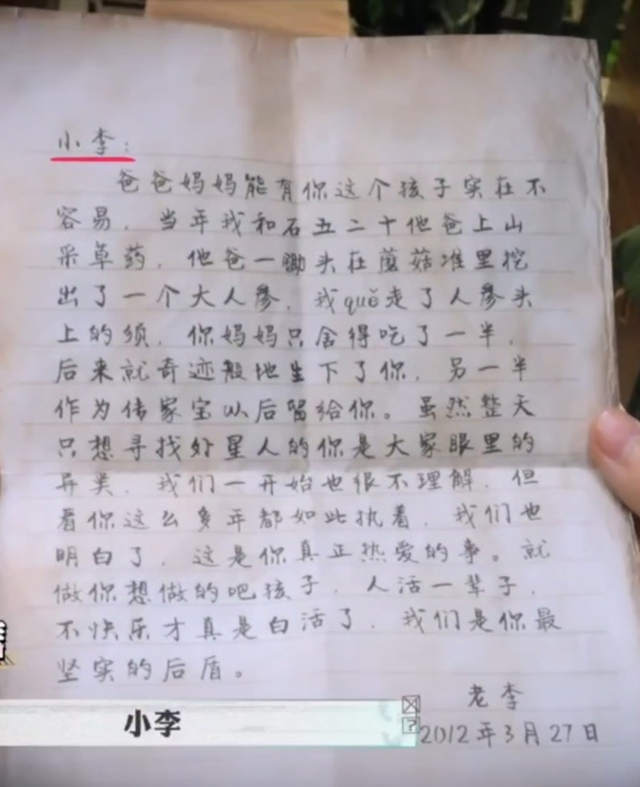 小李：
爸爸妈妈能有你这个孩子实在不
容易，当年我和石五二十他爸上山
采草药，他爸一锄头在蘑菇堆里挖
出了一个大人参，我quē走了人参头
上的须，你妈妈只舍得吃了一半，
后来就奇迹般地生下了你，另一半
作为传家宝以后留给你。虽然整天
只想寻找外星人的你是大家眼里的
异类，我们一开始也很不理解，但
看你这么多年都如此执着，我们也
明白了，这是你真正热爱的事。就
做你想做的吧孩子，人活一辈子，
不快乐才真是白活了，我们是你最
坚实的后盾。
老李
2012年3月27日
小李